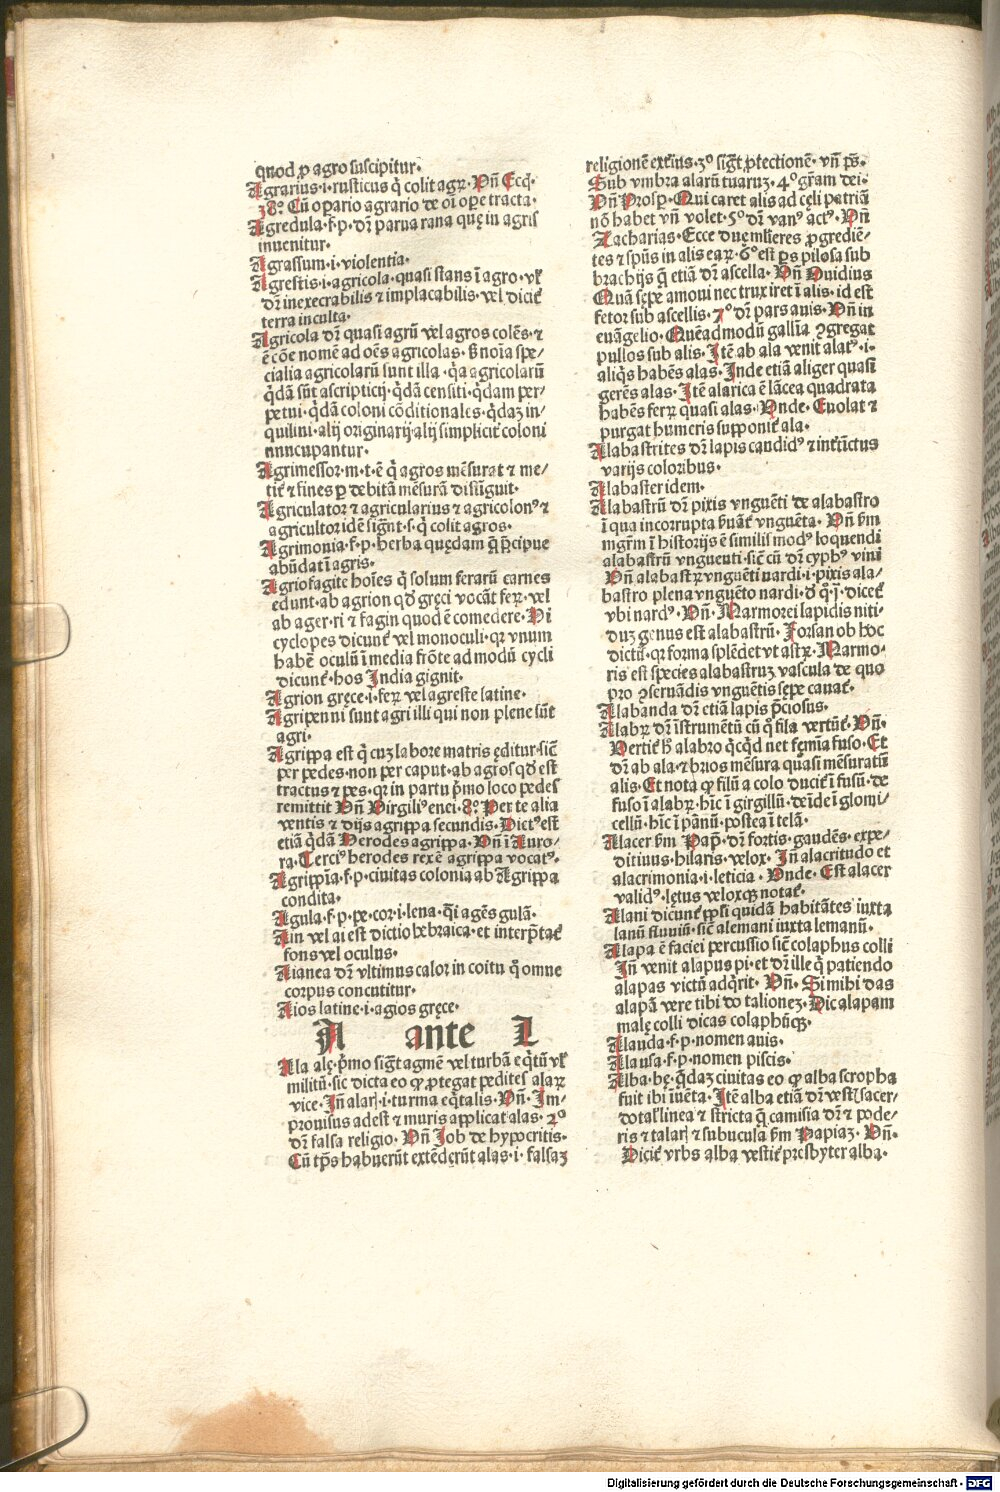 quod ꝓ agro suscipitur·
Agrarius·i·rusticus q̄ colit agꝝ·Vn̄ Ecq̄·
38°·Cū opario agrario de oī oꝑe tracta·
Agredula·f·p·dr̄ parua rana quę in agris
inuenitur·
Agrassum·i·violentia·
Agrestis·i·agricola·quasi stans ī agro·vl̕
dr̄ inexecrabilis ⁊ implacabilis·vel dicit̕
terra inculta·
Agricola dr̄ quasi agrū vel agros colēs·⁊
ē cōe nomē ad oēs agricolas·s̄ noīa spe⸗
cialia agricolarū sunt illa·q̄a agricolarū
q̄dā sūt ascripticij·q̄dā censiti·q̄dam per⸗
petui·q̄dā coloni cōditionales·q̄daꝫ in⸗
quilini·alij originarij·alij simplicit̕ coloni
nnncupantur·
Agrimessor·m·t·ē q̄ agros mēsurat ⁊ me⸗
tit̕ ⁊ fines ꝑ debitā mēsurā distīguit·
Agriculator ⁊ agricularius ⁊ agricolonꝰ ⁊
agricultor idē sigt̄·s·q̄ colit agros·
Agrimonia·f·p·herba quędam q̄ p̄cipue
abūdat ī agris·
Agriofagite hoīes q̄ solum ferarū carnes
edunt·ab agrion qd̄ gręci vocāt feꝝ·vel
ab ager·ri ⁊ fagin quod ē comedere·Hi
cyclopes dicunt̕ vel monoculi·qꝛ vnum
habēt oculū ī media frōte ad modū cycli
dicunt̕·hos India gignit·
Agrion gręce·i·feꝝ vel agreste latine·
Agripenni sunt agri illi qui non plene sūt
agri·
Agrippa est q̄ cuꝫ labore matris ęditur·sic̄
per pedes·non per caput·ab agros qd̄ est
tractus ⁊ pes·qꝛ in partu p̄mo loco pedes
remittit Vn̄ Virgiliꝰ enei·8°·Per te alia
ventis ⁊ dijs agrippa secundis·Dictꝰ est
etiā q̄dā Herodes agrippa·Vn̄ ī Auro⸗
ra·Terciꝰ herodes rex ē agrippa vocatꝰ·
Agrippīa·f·p·ciuitas colonia ab Agrippa
condita·
Agula·f·p·pe·cor·i·lena·q̄i agēs gulā·
Ain vel ai est dictio hebraica·et interp̄tat̕
fons vel oculus·
Aianea dr̄ vltimus calor in coitu q̄ omne
corpus concutitur·
Aios latine·i·agios gręce·
A ante L
Ala alę·p̄mo sigt̄ agmē vel turbā eq̄tū vl̕
militū·sic dicta eo ꝙ ꝓtegat pedites alaꝝ
vice·In̄ alarꝭ·i·turma eq̄talis·Vn̄·Im⸗
prouisus adest ⁊ muris applicat alas·2°
dr̄ falsa religio·Vn̄ Iob de hypocritis·
Cū tp̄s habuerūt extēderūt alas·i·falsaꝫ
religionē exteriꝰ·3° sigt̄ ꝓtectionē·vn̄ ps̄·
Sub vmbra alarū tuaruꝫ·4° gr̄am dei·
Vn̄ Prosꝑ·Qui caret alis ad cęli patriā
nō habet vn̄ volet·5° dr̄ vanꝰ actꝰ·Vn̄
Zacharias·Ecce duę ml̄ieres ꝓgrediē⸗
tes ⁊ spūs in alis eaꝝ·6° est ꝑs pilosa sub
brachijs q̄ etiā dr̄ ascella·Vn̄ Ouidius
Quā sępe amoui nec trux iret ī alis·id est
fetor sub ascellis·7° dr̄ pars auis·Vn̄ in
euāgelio·Quēadmodū gallīa ꝯgregat
pullos sub alis·Itē ab ala venit alatꝰ·i·
aliq̄s habēs alas·Inde etiā aliger quasi
gerēs alas·Itē alarica ē lācea quadrata
habēs feꝝ quasi alas·Vnde·Euolat ⁊
purgat humeris supponit̕ ala·
Alabastrites dr̄ lapis candidꝰ ⁊ intīctus
varijs coloribus·
Alabaster idem·
Alabastrū dr̄ pixis vnguēti de alabastro
ī qua incorrupta s̄uāt̕ vnguēta·Vn̄ s̄m
mgr̄m ī historijs ē similis modꝰ loquendi
alabastrū vnguenti·sic̄ cū dr̄ cyphꝰ vini
Vn̄ alabastꝝ vnguēti nardi·i·pixis ala⸗
bastro plena vnguēto nardi·d̄ q̄·j̄·dicet̕
vbi nardꝰ·Vn̄·Marmorei lapidis niti⸗
duꝫ genus est alabastrū·Forsan ob hoc
dictū·qꝛ forma splēdet vt astꝝ·Marmo⸗
ris est species alabastruꝫ vascula de quo
pro ꝯseruādis vnguētis sępe cauat̕·
Alabanda dr̄ etiā lapis p̄ciosus·
Alabꝝ dr̄ īstrumētū cū q̄ fila vertūt̕·Vn̄·
Vertit̕ h̄ alabro q̄cq̄d net fęmīa fuso·Et
dr̄ ab ala·⁊ brios mēsura quasi mēsuratū
alis·Et nota ꝙ filū a colo ducit̕ ī fusū·de
fuso ī alabꝝ·hīc ī girgillū·deīde ī glomi⸗
cellū·hīc ī pānū·postea ī telā·
Alacer s̄m Pap̄·dr̄ fortis·gaudēs·expe⸗
ditiuus·hilaris·velox·In̄ alacritudo et
alacrimonia·i·leticia·Vnde·Est alacer
validꝰ·lętus veloxqꝫ notat̕·
Alani dicunt̕ ppl̄i quidā habitātes iuxta
lanū fluuiū·sic̄ alemani iuxta lemanū·
Alapa ē faciei percussio sic̄ colaphus colli
In̄ venit alapus pi·et dr̄ ille q̄ patiendo
alapas victū adq̄rit·Vn̄·Si mihi das
alapā vere tibi do talioneꝫ·Dic alapam
malę colli dicas colaphūqꝫ·
Alauda·f·p·nomen auis·
Alausa·f·p·nomen piscis·
Alba·bę·q̄daꝫ ciuitas eo ꝙ alba scropha
fuit ibi iuēta·Itē alba etiā dr̄ vestꝭ sacer⸗
dotal̕ linea ⁊ stricta q̄ camisia dr̄ ⁊ pode⸗
ris ⁊ talarꝭ ⁊ subucula s̄m Papiaꝫ·Vn̄·
Dicit̕ vrbs alba vestit̕ presbyter alba·
Digitalisierung gefördert durch die Deutsche Forschungsgemeinschaft - DFG